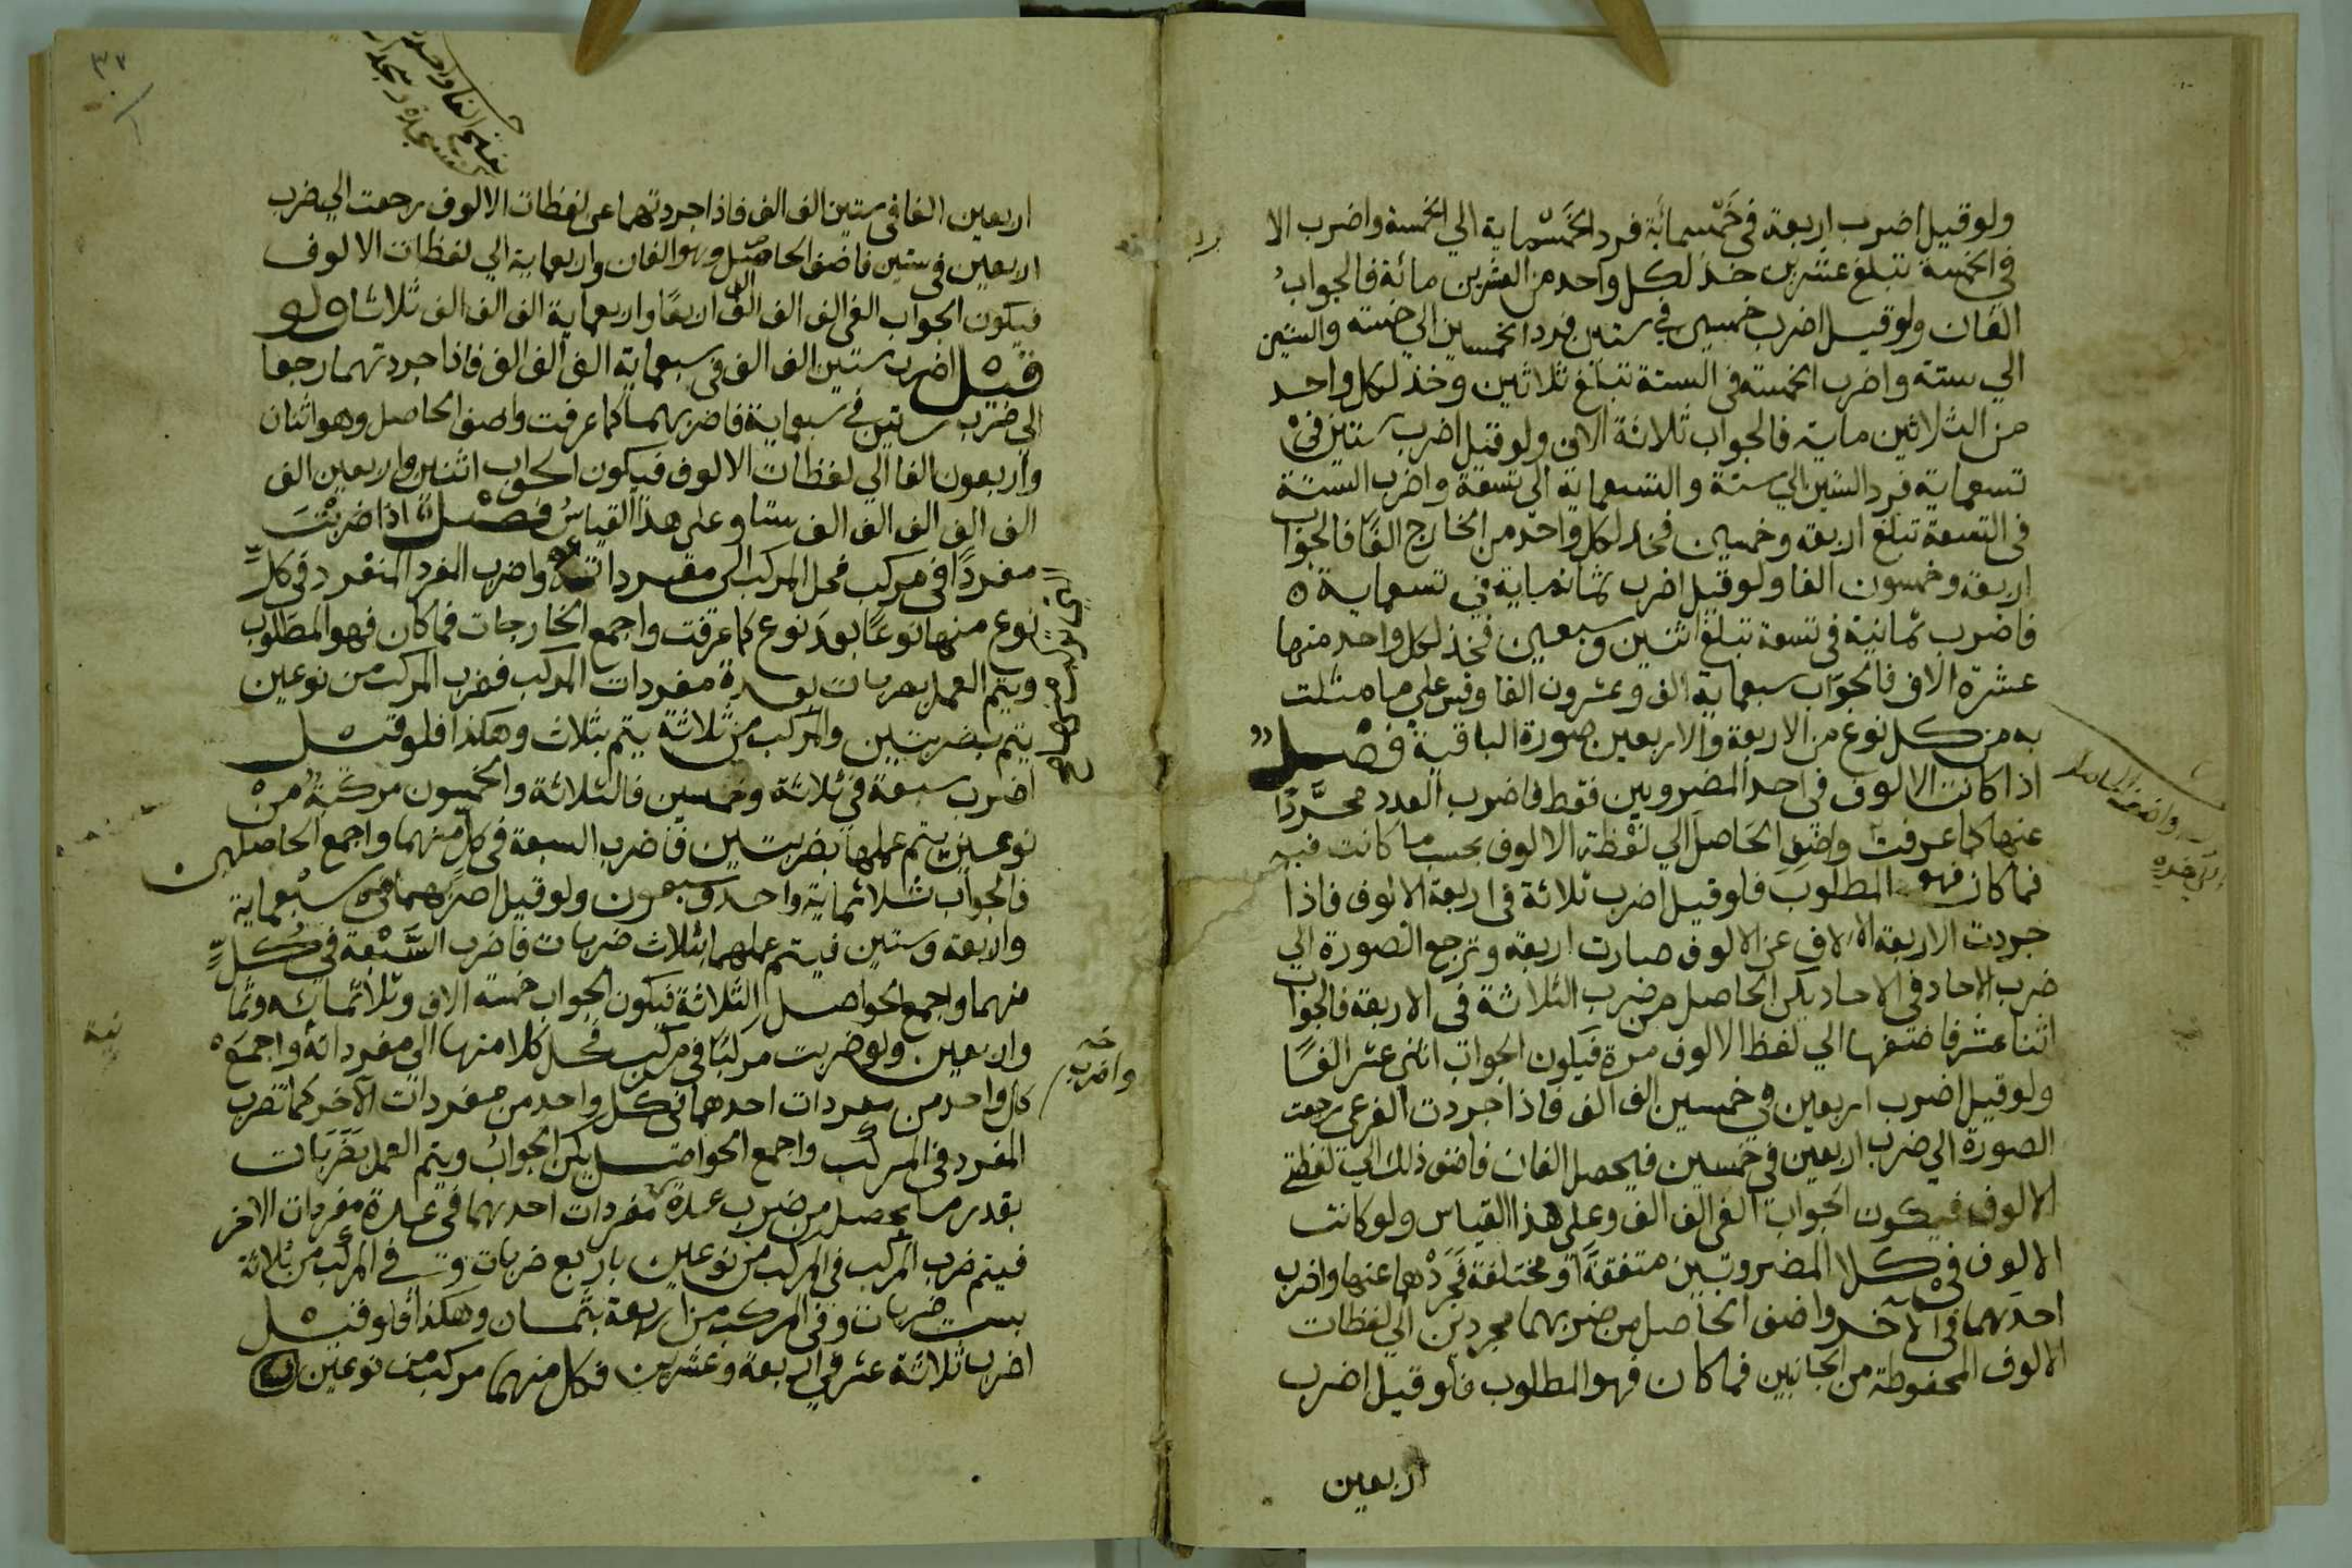 ولو قيل اضرب اربعة في خَمْسمائة فرد الخَمْسْماية الي الخمسة واضرب الا
في الخمسة تبلغ عشرين خذ لكل واحد من العشرين مائة فالجواب
الفان ولو قيل اضرب خمسين في ستين فرد الخمسين الي خمسة والستين
الي ستة واضرب الخمسة في الستة تبلغ ثلاثين وخذ لكل واحد
من الثلاثين ماية فالجواب ثلاثة الاف ولو قيل اضرب ستين في
تسعماية فرد الستين الي ستة والتسعماية الي تسعة واضرب الستة
في التسعة تبلغ اربعة وخمسين فخذ لكل واحد من الخارج الفًا فالجواب
اربعة وخمسون الفا ولو قيل اضرب ثمانماية في تسعماية ٥
فاضرب ثمانية في تسعة تبلغ اثنين وسبعين فخذ لكل واحد منها
عشرة الاف فالجواب سبعماية الف وعشرون الفا وقس علي ما مثلت
به من كل نوع من الاربعة والاربعين صورة الباقية فصل
اذا كانت الالوف في احد المضروبين فقط فاضرب العدد مجرّدًا
عنها كما عرفت واضف الحاصل الي لفظة الالوف بحسب ما كانت فيه
فما كان فهو المطلوب فلو قيل اضرب ثلاثة في اربعة الالوف فاذا
جردت الاربعة الالاف عن الالوف صارت اربعة وترجع الصورة الي
ضرب الاحاد في الاحاد يكن الحاصل من ضرب الثلاثة في الاربعة فالجواب
اثنا عشر فاضفها الي لفظ الالوف مرة فيكون الجواب اثني عشر الفًا
ولو قيل اضرب اربعين في خمسين الف الف فاذا جردت الفرعي رجعت
الصورة الي ضرب اربعين في خمسين فيحصل الفان فاضف ذلك الي لفظتي
الالوف فيكون الجواب الفي الف الف وعلي هذا القياس ولو كانت
الالوف في كلا المضروبين متفقة او مختلفة فَجَرِّدْهما عنها واضرب
احدهما في الآخر واضف الحاصل من ضربهما مجردين الي لفظات
الالوف المحفوظة من الجانبين فما كان فهو المطلوب فلو قيل اضرب
اربعين
واضف الحاصل
٣٧
اربعين الفا في ستين الف الف فاذا جردتهما عن لفظات الالوف رجعت الي ضرب
اربعين في ستين فاضف الحاصل وهو الفان واربعماية الي لفظات الالوف
فيكون الجواب الفي الف الف الف الف اربعًا واربعماية الف الف الف ثلاثا ولو
قيل اضرب ستين الف الف في سبعماية الف الف الف فاذا جردتهما رجعا
الي ضرب ستين في سبعماية فاضربهما كما عرفت واضف الحاصل وهو اثنان
واربعون الفا الي لفظات الالوف فيكون الجواب اثنين واربعين الف
الف الف الف الف الف ستا وعلي هذا القياس فصل اذا ضربت
مفردًا في مركب فحل المركب الي مفرداته واضرب المفرد المنفرد في كلِّ
نوع منها نوعًا بعدَ نوع كما عرفت واجمع الخارجات فما كان فهو المطلوب
ويتم العمل بضربات بعدة مفردات المركب فضرب المركب من نوعين
يتم بضربتين والمركب من ثلاثة يتم بثلاث وهكذا فلو قيل
اضرب سبعة في ثلاثة وخمسين فالثلاثة والخمسون مركبة من
نوعين يتم عملها بضربتين فاضرب السبعة في كل منهما واجمع الحاصلين
فالجواب ثلاثماية واحد وسبعون ولو قيل اضربهما في سبْعماية
واربعة وستين فيتم عملهما بثلاث ضربات فاضرب السَّبْعة في كُلٍّ
منهما واجمع الحواصل الثلاثة فيكون الجواب خمسة الاف وثلاثمائة وثما
واربعين ولو ضربت مركبًا في مركب فحل كلا منها الي مفرداته واجمعه
كل واحد من مفردات احدهما في كل واحد من مفردات الآخر كما تضرب
المفرد في المركب واجمع الحواصل يكن الجواب ويتم العمل بضَرَبَات
بقدر ما يحصل من ضرب عدة مفردات احدهما في عدة مفردات الاخر
فيتم ضرب المركب في المركب من نوعين باربع ضربات وفي المركب من ثلاثة
بست ضربات وفي المركب من اربعة بثمان وهكذا فلو قيل
اضرب ثلاثة عشر في اربعة وعشرين فكل منهما مركب من نوعين
واضرب